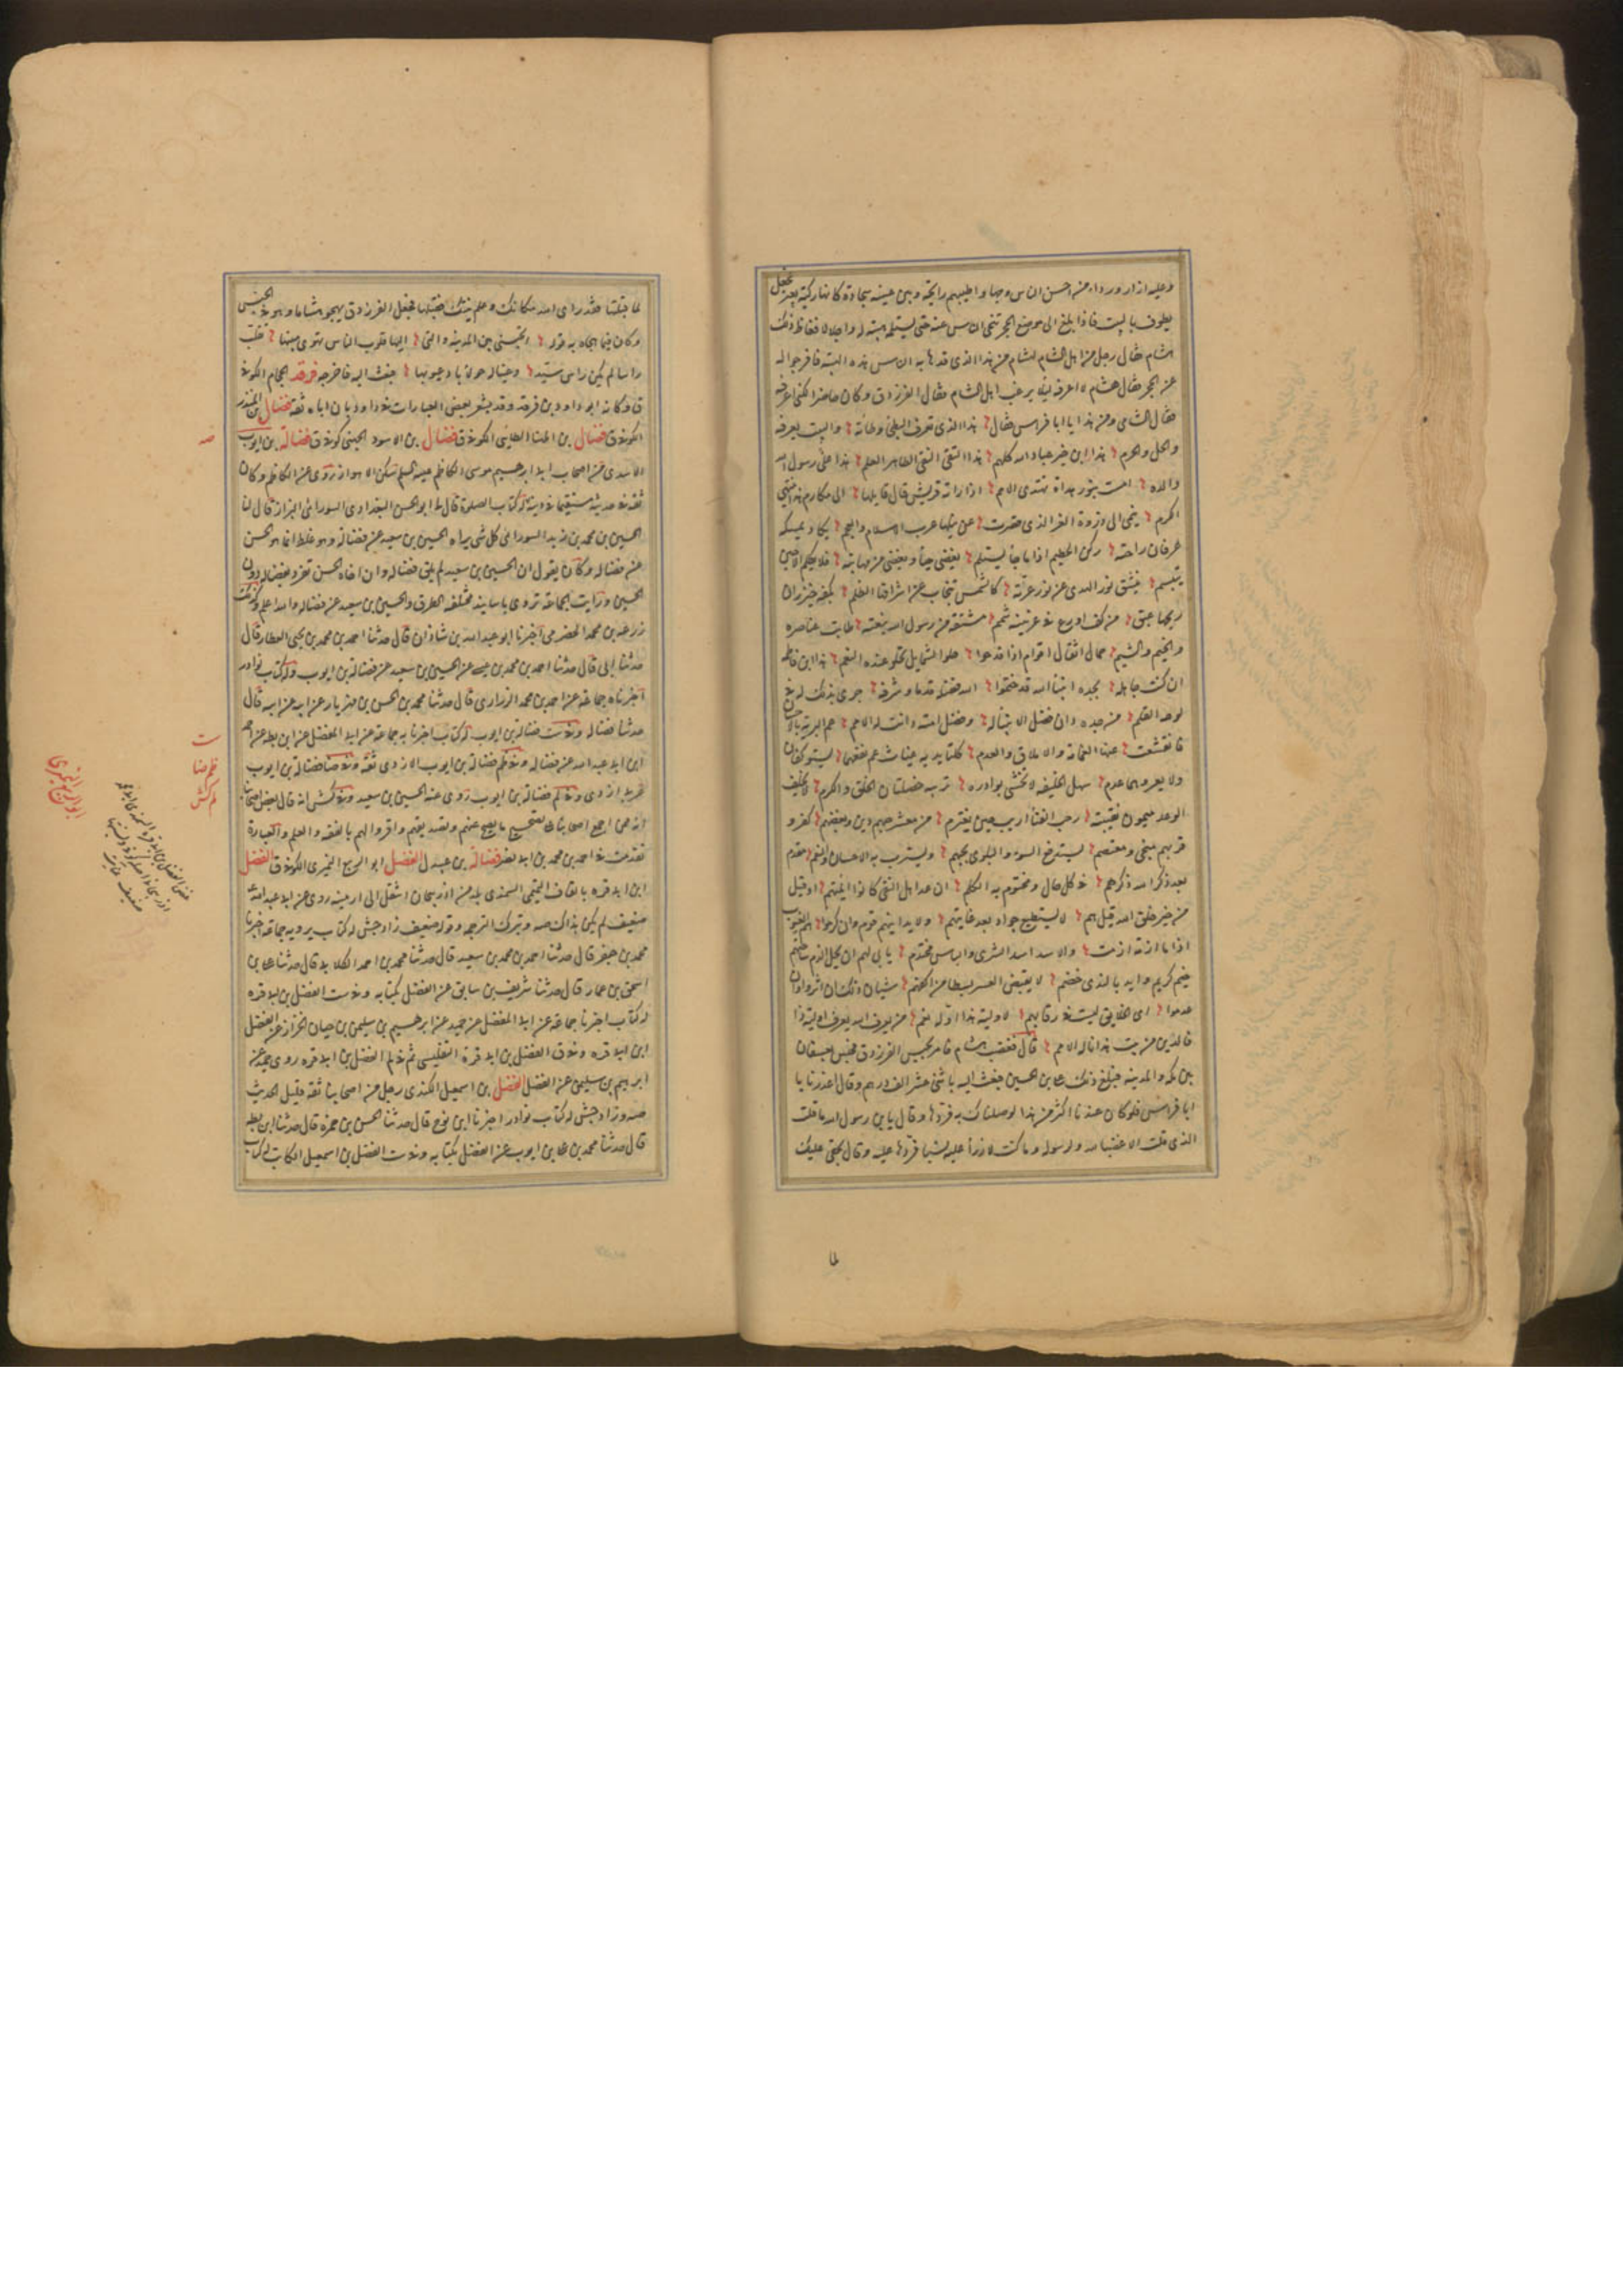 وعليه ازار ورداء من احسن الناس وجها واطيبهم رائحة وبين عينيه سجادة كانها ركبة بعير فجعل
يطوف بالبيت فاذا بلغ الى موضع الحجر تنحى الناس عنه حتى يستلمه هيبة له واجلالا فغاظ ذلك
هشام فقال رجل من اهل الشام لهشام من هذا الذى قد هابه الناس هذه الهيبة فافرجوا له
عن الحجر فقال هشام لا اعرفه ليلا يرغب اهل الشام فقال الفرزدق وكان حاضرا لكنى اعرفه
فقال الشامى ومن هذا يا ابا فراس فقال هذا الذى تعرف البطحا وطأته والبيت يعرفه
والحل والحرم هذا ابن خير عباد الله كلهم هذا التقى النقى الطاهر العلم هذا على رسول الله
والده امست بنور هداه تهتدى الامم اذا راته قريش قال قايلها الى مكارم هذا ينتهى
الكرم ينمى الى ذروة العز الذى قصرت عن نيلها عرب الاسلام والعجم يكاد يمسكه
عرفان راحته ركن الحطيم اذا ما جا يستلم يغضى حيا ويغضى من مهابته فلا يكلم الا حين
يبتسم ينشق نور الهدى عن نور غرته كالشمس تنجاب عن اشراقها الظلم بكفه خيزران
ريحها عبق من كف اروع فى عرنينه شمم مشتقة من رسول الله نبعته طابت عناصره
والخيم والشيم حمال اثقال اقوام اذا فدحوا حلو الشمايل تحلو عنده النعم هذا ابن فاطمه
ان كنت جاهله بجده انبيا الله قد ختموا الله فضله قدما وشرفه جرى بذاك له فى
لوحه القلم من جده دان فضل الانبيا له وفضل امته دانت له الامم عم البرية بالاحسان
فانقشعت عنها العماية والاملاق والعدم كلتا يديه غياث عم نفعهما يستوكفان
ولا يعروهما عدم سهل الخليقه لا تخشى بوادره تزينه خصلتان الخلق والكرم لا يخلف
الوعد ميمون نقيبته رحب الفنا اريب حين يعترم من معشر حبهم دين وبغضهم كفر و
قربهم منجى ومعتصم يستدفع السوء والبلوى بحبهم ويسترب به الاحسان والنعم مقدم
بعد ذكر الله ذكرهم فى كل حال ومختوم به الكلم ان عد اهل التقى كانوا ائمتهم او قيل
من خير خلق الله قيل هم لا يستطيع جواد بعد غايتهم ولا يدانيهم قوم وان كرموا هم الغيوث
اذا ما ازمة ازمت والاسد اسد الشرى والباس محتدم يابى لهم ان يحل الذم ساحتهم
خيم كريم وايد بالندى هضم لا يقبض العسر بسطا من اكفهم سيان ذلك ان اثروا وان
عدموا اى الخلايق ليست فى رقابهم لاولية هذا او له نعم من يعرف الله يعرف اولية ذا
فالدين من بيت هذا ناله الامم قال فغضب هشام فامر بحبس الفرزدق فحبس بعسفان
بين مكه والمدينه فبلغ ذلك على بن الحسين فبعث اليه باثنى عشر الف درهم وقال اعذرنا يا
ابا فراس فلو كان عندنا اكثر من هذا لوصلناك به فردها وقال يا بن رسول الله ما قلت
الذى قلت الا غضبا لله ولرسوله وما كنت لارزأ عليه شيا فردها عليه وقال بحقى عليك
لما
لما قبلتها فقد راى الله مكانك وعلم نيتك فقبلها فجعل الفرزدق يهجو هشاما وهو فى الحبس
وكان فيما هجاه به قوله اتحبسنى بين المدينه والتى اليها قلوب الناس تهوى منيبها تقلب
راسا لم يكن راس سيد وعينا له حولا باد عيوبها فبعث اليه فاخرجه فرقد الحجام الكوفى
ق وكانه ابو داود بن فرقد وقد يشعر بعض العبارات فى داود بان اباه ثقة فضال بن المنذر
الكوفى ق فضال بن الطائى الكوفى ق فضال بن الاسود الجهنى كوفى ق فضالة بن ايوب
الازدى من اصحاب ابى ابرهيم موسى الكاظم عليه السلم سكن الاهواز روى عن الكاظم وكان
ثقة فى حديثه مستقيما فى دينه له كتاب الصلوة قال لى ابو الحسن البغدادى السورائى البزاز قال لنا
الحسين بن محمد بن يزيد السورائى كل شى يراه الحسين بن سعيد عن فضالة فهو غلط انما هو الحسن
عن فضاله وكان يقول ان الحسين بن سعيد لم يلق فضاله وان اخاه الحسن تفرد بفضاله دون
الحسين ورايت الجماعة تروى باسانيد مختلفه الطرق والحسين بن سعيد عن فضاله والله اعلم وكذلك
زرعه بن محمد الحضرمى اخبرنا ابو عبد الله بن شاذان قال حدثنا احمد بن محمد بن يحيى العطار قال
حدثنا ابى قال حدثنا احمد بن محمد بن عيسى عن الحسين بن سعيد عن فضالة بن ايوب وله كتاب نوادر
اخبرناه جماعة عن احمد بن محمد الزرارى قال حدثنا محمد بن الحسن بن مهزيار عن ابيه عن ابيه قال
حدثنا فضاله وفى ست فضالة بن ايوب له كتاب اخبرنا به جماعة عن ابى المفضل عن ابن بطه عن احمد
ابن ابى عبد الله عن فضاله وفى ظم فضالة بن ايوب الازدى ثقة وفى ضا فضالة بن ايوب
عربى ازدى وفى لم فضالة بن ايوب روى عنه الحسين بن سعيد وفى كش انه قال بعض اصحابنا
انه ممن اجمع اصحابنا على تصحيح ما يصح عنهم وتصديقهم واقروا لهم بالفقه والعلم والعبارة
تقدمت فى احمد بن محمد بن ابى نصر فضالة بن عبد ل الفضل ابو الربيع الكوفى ق الفضل
ابن ابى قره بالقاف التميمى السمندى بلد من اذربيجان انتقل الى ارمينيه روى عن ابى عبد الله
ضعيف لم يكن بذاك صه وبترك الترجمه وقوله ضعيف زاد جش له كتاب يرويه جماعة اخبرنا
محمد بن جعفر قال حدثنا احمد بن محمد بن سعيد قال حدثنا محمد بن احمد الكلابى قال حدثنا على بن
اسحق بن عمار قال حدثنا شريف بن سابق عن الفضل بكتابه وفى ست الفضل بن ابى قره
له كتاب اخبرنا جماعة عن ابى المفضل عن حميد عن ابرهيم بن سليمن بن حيان الخزاز عن الفضل
ابن ابى قره وفى ق الفضل بن ابى قرة التفليسى ثم فى لم الفضل بن ابى قره روى حميد عن
ابرهيم بن سليمن عن الفضل الفضل بن اسمعيل الكندى رجل من اصحابنا ثقة قليل الحديث
صه وزاد جش له كتاب نوادر اخبرنا ابن نوح قال حدثنا الحسن بن حمزه قال حدثنا ابن بطه
قال حدثنا محمد بن على بن ايوب عن الفضل بكتابه وفى ست الفضل بن اسمعيل الكاتب له كتاب
صه
ست
ظم ضا
لم كش